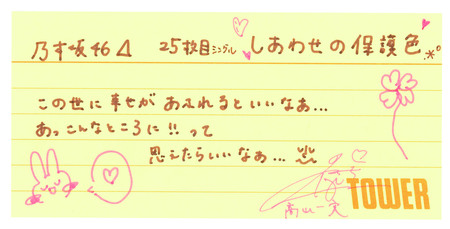 乃木坂46 25枚目シングル しあわせの保護色
この世に幸せがあふれるといいなあ...
あっこんなところに!! って
思えたらいいなあ...
高山一実
TOWER